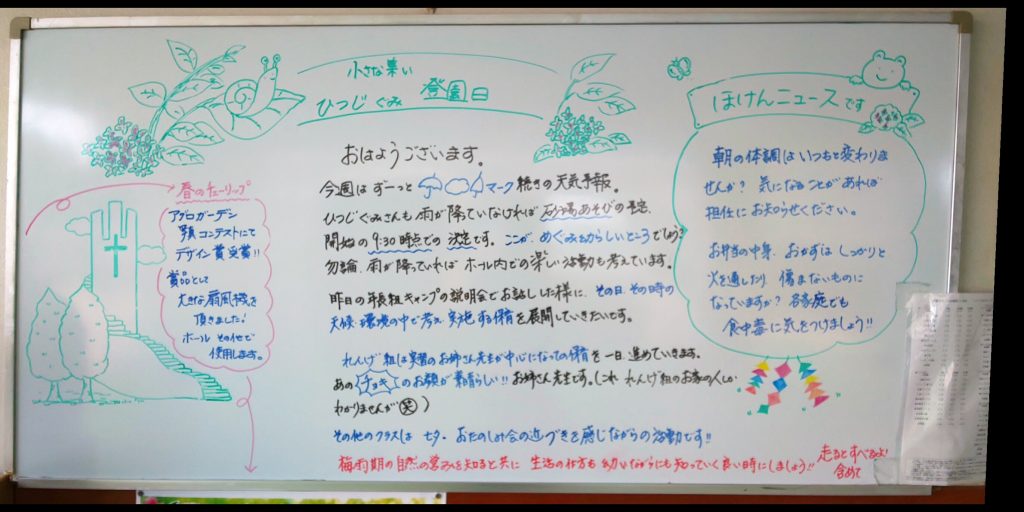 小さな集い
ひつじぐみ 登園日
おはようございます。
今週は ずーっと マーク続きの天気予報。
ひつじぐみさんも 雨が降っていなければ 砂場あそびの予定、
開始の9:30時点での 決定です。ここが、めぐみ園らしいところでしょう?
勿論、雨が降っていれば ホール内での楽しい活動も考えています。
昨日の年長組キャンプの説明会でお話しした様に、その日、その時の
天候・環境の中で考え、実施する保育を展開していきたいです。
れんげ組は実習のお姉さん先生が中心になっての保育を一日、進めていきます。
あの チョキ のお顔が素晴らしい!! お姉さん先生です。(これ れんげ組のお家の人しか
わかりませんが 笑 )
その他のクラスは 七夕・おたのしみ会の近づきを感じながらの活動です!!
梅雨期の自然の営みを知ると共に 生活の仕方も 幼いながらにも知っていく良い時にしましょう!!
走るとすべるよ!
含めて
春のチューリップ
アグロガーデン
コンテストにて
デザイン賞受賞!!
賞品として
大きな扇風機を
頂きました!
ホール その他で
使用します。
ほけんニュースです
朝の体調はいつもと変わりま
せんか? 気になることがあれば
担任にお知らせください。
お弁当の中身、おかずは しっかりと
火を通したり 傷まないものに
なっていますか? 各家庭でも
食中毒に気をつけましょう!!